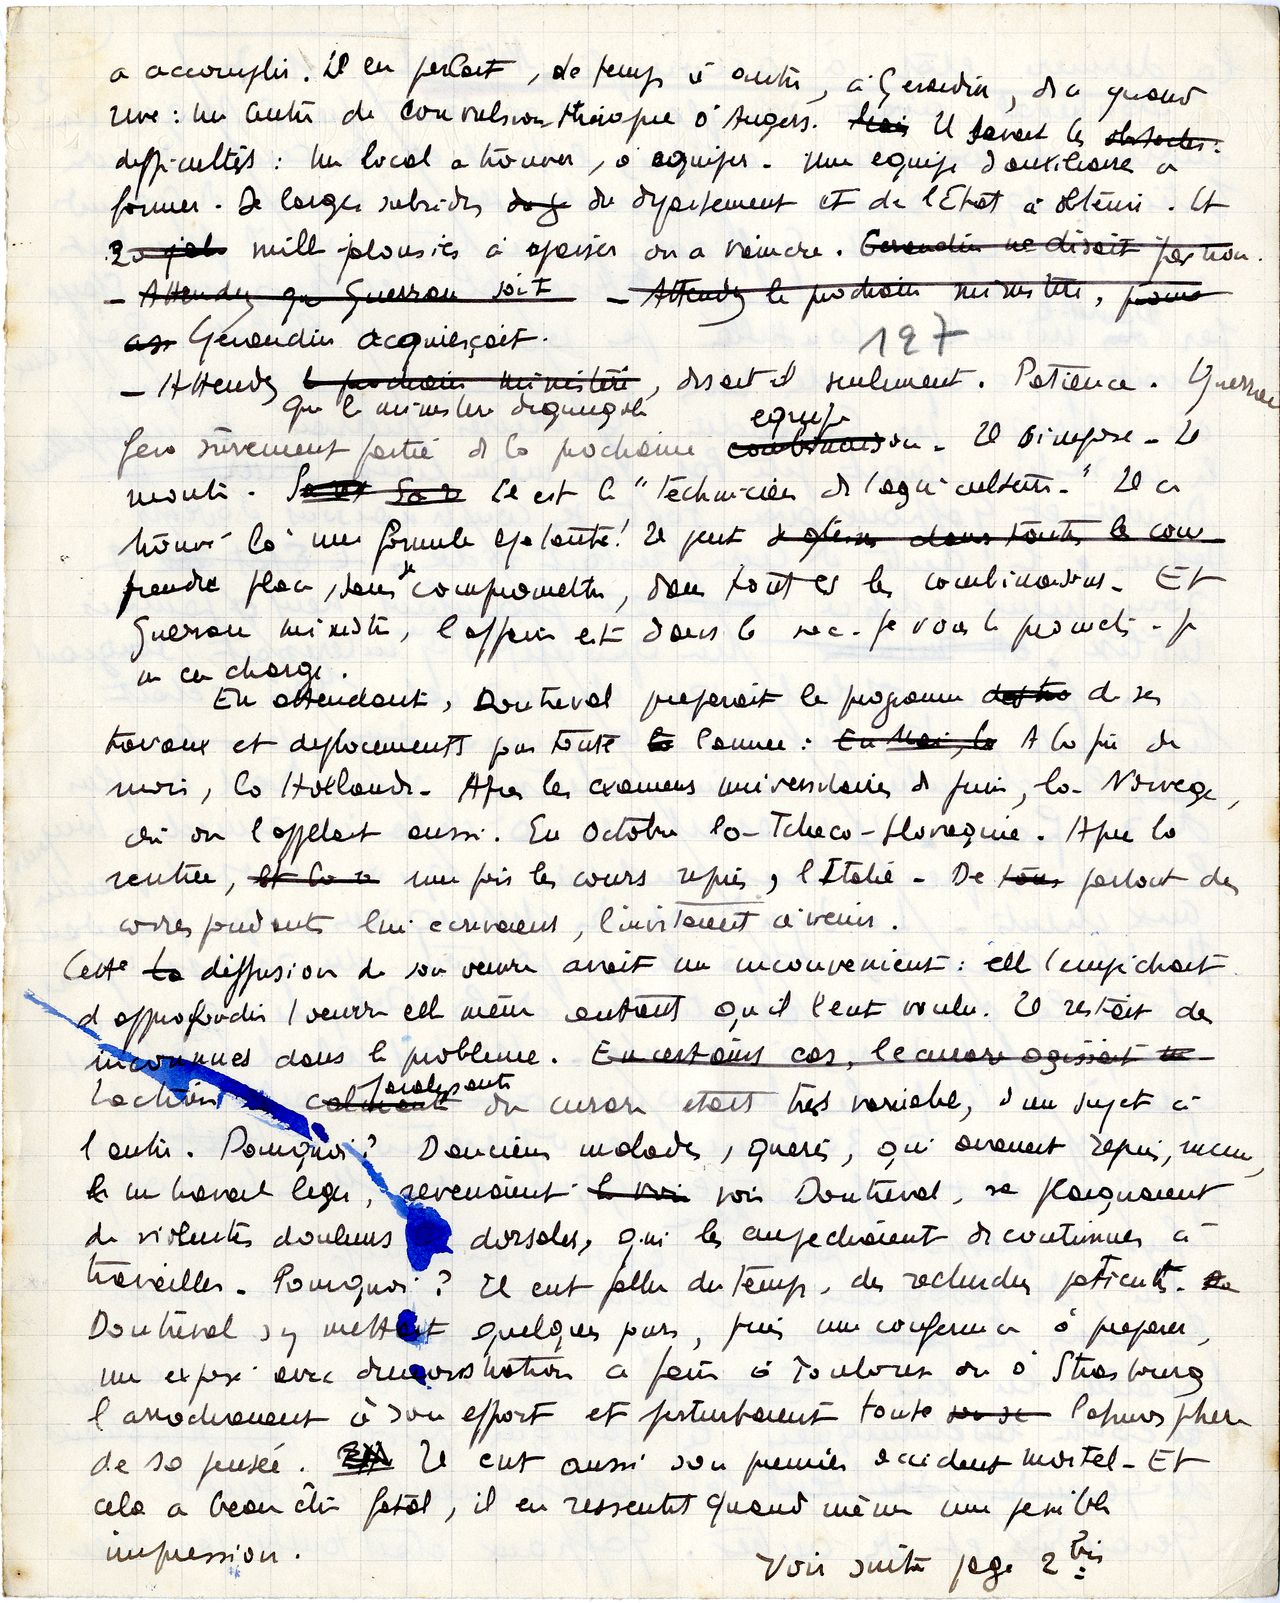 a accomplir. Il en parlait, de temps à autre, à Gerardin, de ce grand
reve : un centre de convulsionthérapie à Angers. Mais Il savait les obstacles.
difficultés : un local a trouver, à equiper. Une equipe d'auxiliaires a
former. De larges subsides du departement et de l'Etat à obtenir. Et
mille jalousies à apaiser ou a vaincre. Gerardin ne disait pas non.
- Attendez que Guerran soit - Attendez le prochain ministère,
Gerardin acquiesçait.
127
- Attendez le prochain ministère, disait il seulement. Patience. Guerran
que le ministère degringole
equipe
fera sûrement partie de la prochaine combinaison. Il s'impose. Il
monte. Il est le "technicien de l'agriculture." Il a
trouvé là une formule epatante! Il peut
prendre place, sans se compromettre, dans toutes les combinaisons. Et
Guerran ministre, l'affaire est dans le sac. Je vous le promets. Je
m'en charge.
En attendant, Doutreval preparait le programme de ses
travaux et deplacements pour toute l'annee : En Mai, la A la fin du
mois, la Hollande. Apres les examens universitaires de juin, la Norvege,
où on l'appelait aussi. En Octobre la Tcheco-slovaquie. Apres la
rentrée, et la une fois les cours repris, l'Italie. De partout des
correspondants lui ecrivaient, l'invitaient à venir.
Cette La diffusion de son oeuvre avait un inconvenient : elle l'empêchait
d'approfondir l'oeuvre elle même autant qu'il l'eut voulu. Il restait des
inconnues dans le probleme. En certains cas, le curare agissait
paralysante
L'action calmante du curare etait très variable, d'un sujet à
l'autre. Pourquoi? D'anciens malades, gueris, qui avaient repris, meme,
un travail leger, revenaient voir Doutreval, se plaignaient
de violentes douleurs dorsales, qui les empechaient de continuer à
travailler. Pourquoi? Il eut fallu du temps, des recherches patientes.
Doutreval s'y mettait quelques jours, puis une conference à preparer,
un exposé avec demonstration a faire à Toulouse ou à Strasbourg
l'arrachaient à son effort et perturbaient toute l'atmosphere
de sa pensée. Il eut aussi son premier accident mortel. Et
cela a beau être fatal, il en ressentit quand même une penible
impression.
Voir suite page 2 bis